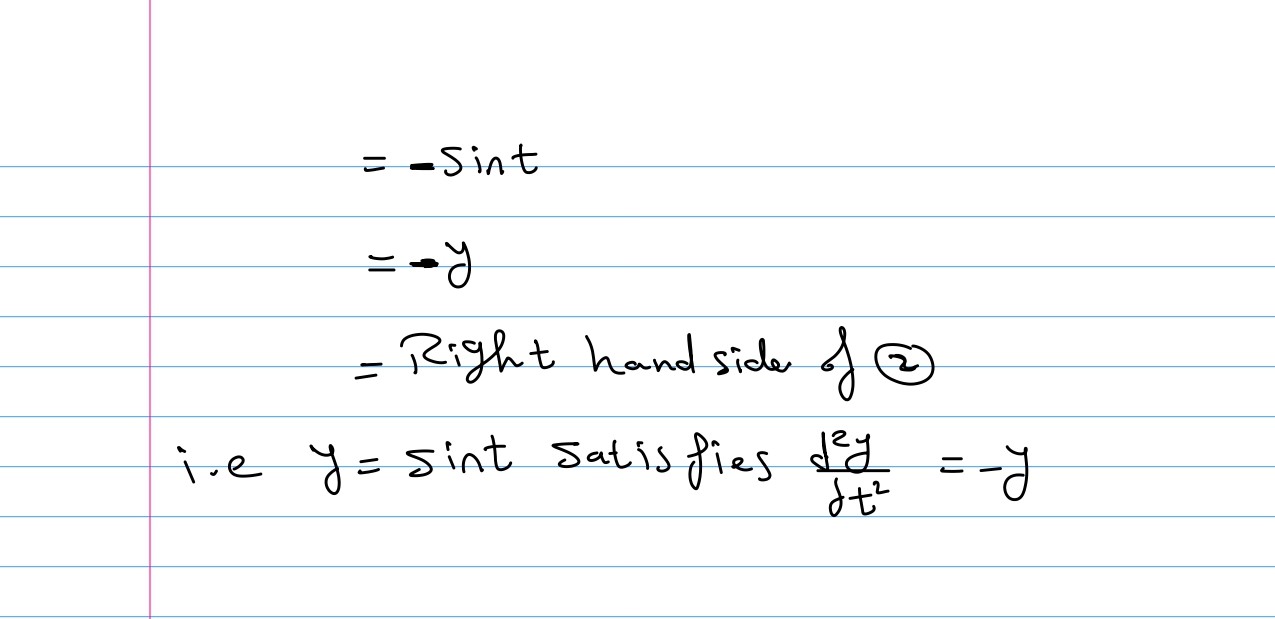 = -sint
= -y
= Right hand side of ②
i.e y = sint satisfies d²y/dt² = -y